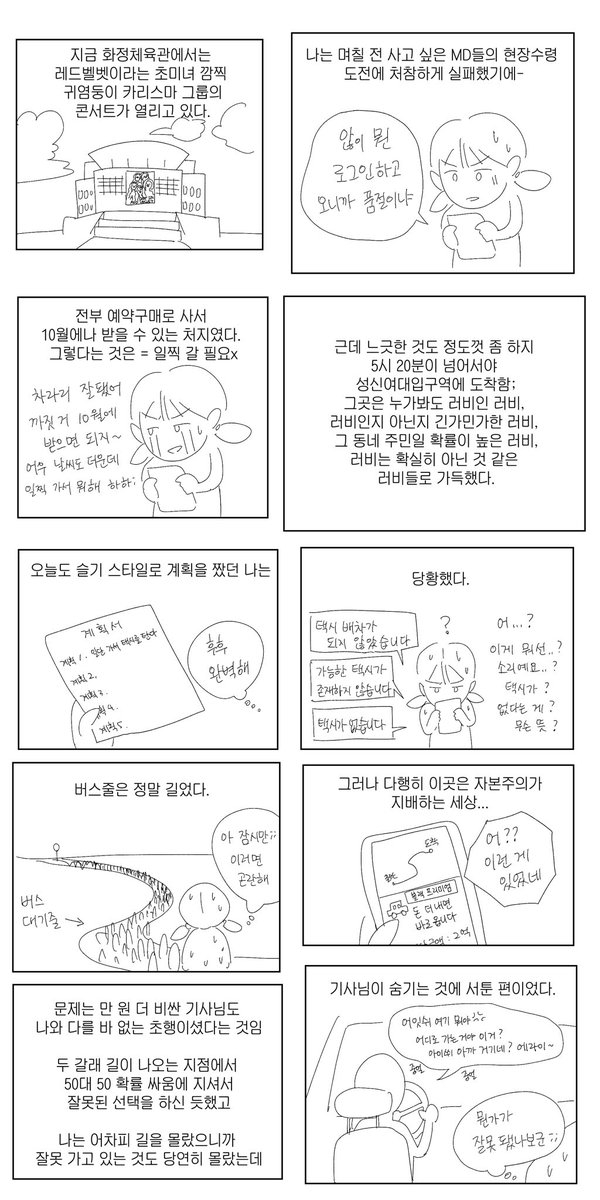 지금 화정체육관에서는
레드벨벳이라는 초미녀 깜찍
귀염둥이 카리스마 그룹의
콘서트가 열리고 있다.
나는 며칠 전 사고 싶은 MD들의 현장수령
도전에 처참하게 실패했기에-
아이 뭔
로그인하고
오니까 품절이냐
전부 예약구매로 사서
10월에나 받을 수 있는 처지였다.
그렇다는 것은 = 일찍 갈 필요x
차라리 잘됐어
까짓거 10월에
받으면 되지~
어우 날씨도 더운데
일찍 가서 뭐해 하하;
근데 느긋한 것도 정도껏 좀 하지
5시 20분이 넘어서야
성신여대입구역에 도착함;
그곳은 누가봐도 러비인 러비,
러비인지 아닌지 긴가민가한 러비,
그 동네 주민일 확률이 높은 러비,
러비는 확실히 아닌 것 같은
러비들로 가득했다.
오늘도 슬기 스타일로 계획을 짰던 나는
계획서
계획1. 일단 가서 택시를 탄다
계획2.
계획3.
획4.
계획5.
후후
완벽해
당황했다.
택시 배차가
되지 않았습니다
가능한 택시가
존재하지 않습니다
택시가 없습니다
?
어...?
이게 뭐선..?
소리예요..?
택시가?
없다는 게?
무슨 뜻?
버스줄은 정말 길었다.
아 잠시만;;
이러면
곤란해
버스
대기줄
그러나 다행히 이곳은 자본주의가
지배하는 세상...
도착
출발
블랙 프리미엄
돈 더 내면
바로 옵니다
금액 : 2억
어??
이런 게
있었네
문제는 만 원 더 비싼 기사님도
나와 다를 바 없는 초행이셨다는 것임
두 갈래 길이 나오는 지점에서
50대 50 확률 싸움에 지셔서
잘못된 선택을 하신 듯했고
나는 어차피 길을 몰랐으니까
잘못 가고 있는 것도 당연히 몰랐는데
기사님이 숨기는 것에 서툰 편이었다.
어잇쉬 여기 뭐야
어디로 가는거야 이거?
아이쒸 아까 거기네? 에라이~
중얼
중얼
뭔가가
잘못 됐나보군;;